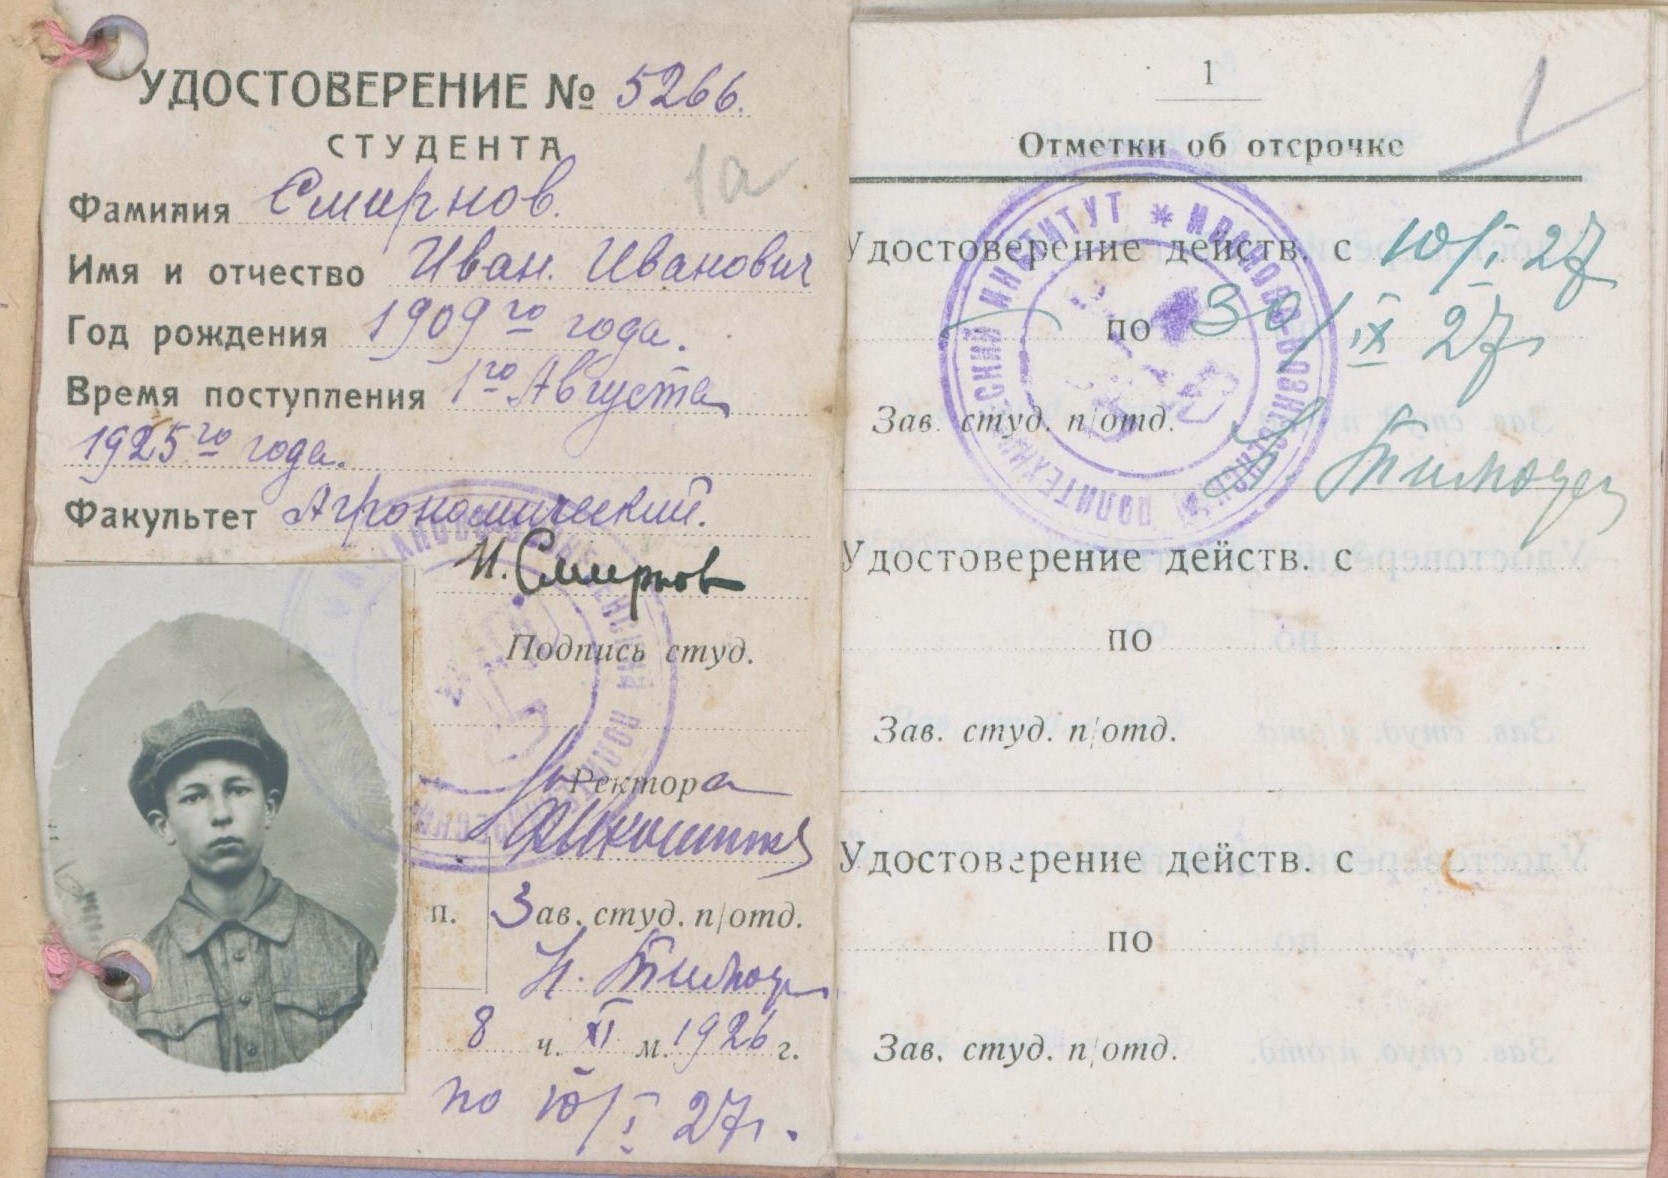 УДОСТОВЕРЕНИЕ № 5266.
СТУДЕНТА
1а
Фамилия Смирнов.
Имя и отчество Иван. Иванович
Год рождения 1909го года.
Время поступления 1го Августа
1925го года.
Факультет Агрономический.
И. Смирнов
Подпись студ.
Ректора
п.
Зав. студ. п/отд.
8 ч. XI м. 1926 г.
по 10/I 27г.
1
1
Отметки об отсрочке
Удостоверение действ. с 10/I 27
по 30/IX 27г
Зав. студ. п/отд.
ИВАНОВО-ВОЗНЕСЕНСКИЙ ПОЛИТЕХНИЧЕСКИЙ ИНСТИТУТ
Удостоверение действ. с
по
Зав. студ. п/отд.
Удостоверение действ. с
по
Зав. студ. п/отд.